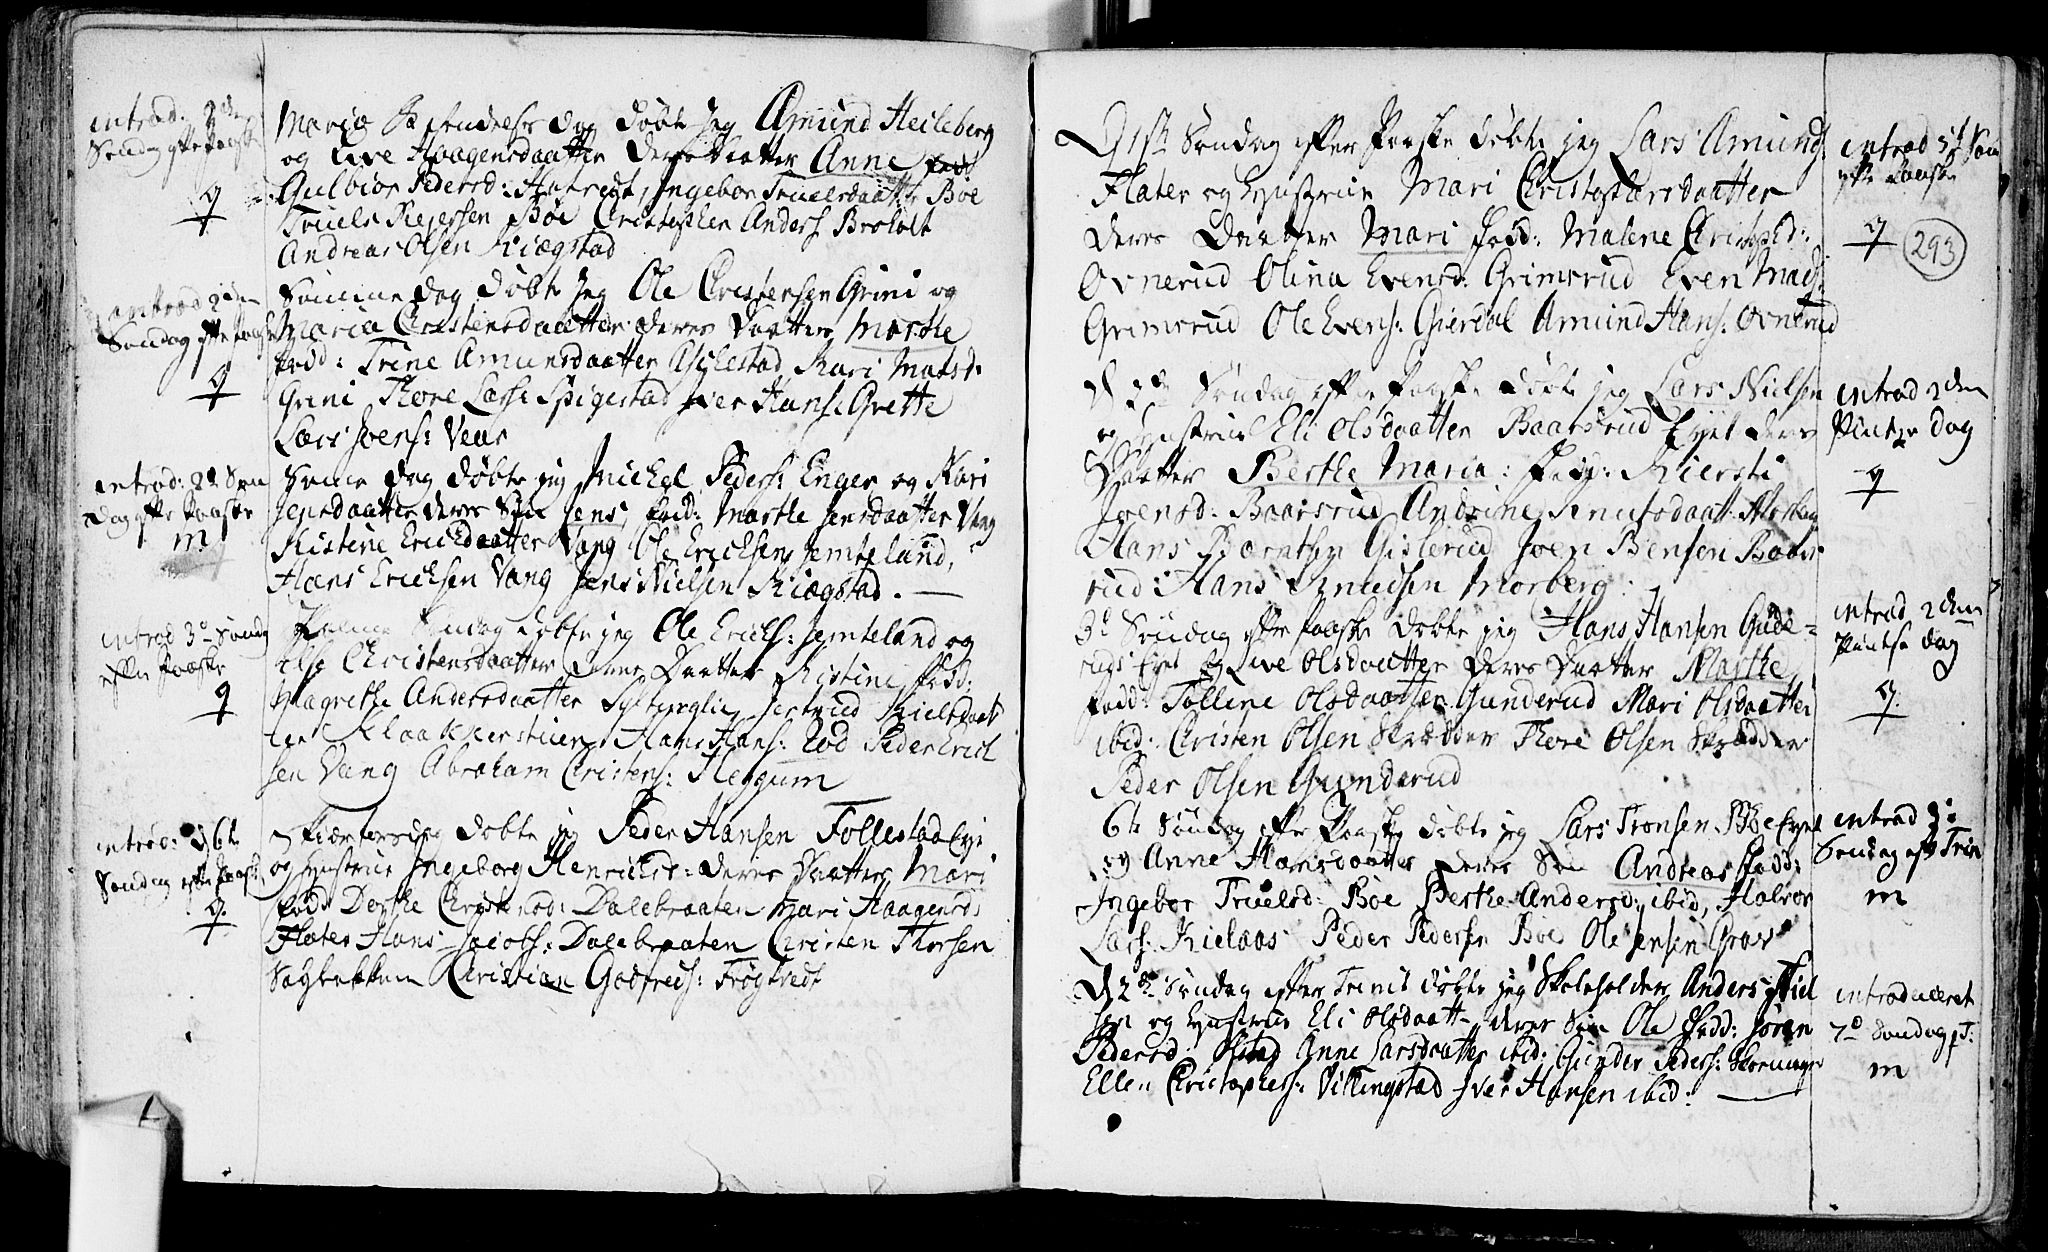 introd: 2den
Søndag efter Paaske
q
Mariæ Besøgelses dag døbte jeg Amund Heileberg
og Live Haagensdaatter deres Daatter Anne fad:
Gulbior Pedersd: Haavedt, Ingebor Truelsdaatter Bøe
Truels Siversen Bøe Christopher Anders: Braløft
Andreas Olsen Kiægstad
introd 2den
Søndag efter Paaske
q
Samme dag døbte jeg Ole Christensen Grini og
Maria Christensdaatter deres Daatter Marthe
fadd: Trine Amunsdaatter Askestad, Kari Matsd:
Grini Thore Lars: Spigestad Iver Hans: Grette
Lars Svens: Vear
introd: 2d Søn
dag efter Paaske
m.
Samme dag døbte jeg Michel Peders: Enger og Kari
Jensdaatter deres Søn Jens, fad: Marthe Jensdaatter Vang
Kistine Ericksdaatter Vang Ole Ericksen Jemteland,
Hans Ericksen Vang Jens Nielsen Kiægstad.
introd 3d Sønda
efter Paaske
q
Palme Søndag døbte jeg Ole Ericks: Jemteland og
Else Christensdaatter deres Daatter Kistine Fadd:
Magrethe Andersdaatter Sylterglie Jertrud Nielsdaat
ter Klaakkerstuen Hans Hans: Rød Peder Erick
sen Vang Abraham Christens: Heggum
introd: d 6te
Søndag efter Paaske
q.
Skiærtorsdag døbte jeg Peder Hansen Follestad Eye
og Hystrue Ingeborg Henrichsd: deres Daatter Mari
fad: Dorthe Christensd: Dalebraaten Mari Haagensd:
Flater Hans Jacobs: Dalebraaten Christen Thorsen
Sagbakken Christian Godfreds: Frøgtvedt
293
D 1ste Søndag efter Paaske døbte jeg Lars Amunds:
Flater og Hystrue Mari Christophersdaatter
deres Daatter Mari Fadd: Malene Christophd:
Ovnerud Olina Evensd: Grimsrud Even Mads:
Grimsrud Ole Evens: Gierdal Amund Hans: Ovnerud
introd 5t Søn
efter Paaske
q
D 2den Søndag efter Paaske døbte jeg Lars Nielsen
og Hystrue Eli Olsdaatter Baarsrud Eyet deres
Daatter Berthe Maria: Fadd: Kiersti
Joensd: Baarsrud Andrine Knutsdaatt:
Hans Berntsen Gislerud Joen Bensen Baars
rud: Hans Knudsen Morberg:
introd 2den
Pintze dag
q
3d Søndag efter Paaske døbte jeg Hans Hansen Gude=
ruds Eyet og Live Olsdaatter deres Daatter Marthe
fadd: Tollene Olsdaatter Gunderud Mari Olsdaatter
ibid: Christen Olsen Skrædder Thore Olsen Skrædder
Peder Olsen Gunderud
introd 2den
Pintse dag
q.
6te Søndag efter Paaske døbte jeg Lars Tronsen Bøe Eyet
og Anne Hansdaatter deres Søn Andreas Fadd:
Ingebor Truelsd: Bøe Berthe Andersd: ibid, Halvor
Lars: Kielaas Peder Pedersen Bøe Ole Jensen Grav
introd 3:
Søndag efter Trin
m
D 2den Søndag efter Trinit døbte jeg Skoleholder Anders Niel
sen og Hystrue Eli Olsdaatt- deres Søn Ole Fadd: Søren
Pedersd: Anne Larsdaatter ibid: Gunder Peders:
Ellen Christophers: Villingstad Iver Hansen ibid:
introduceret
7d Søndag p T:
m